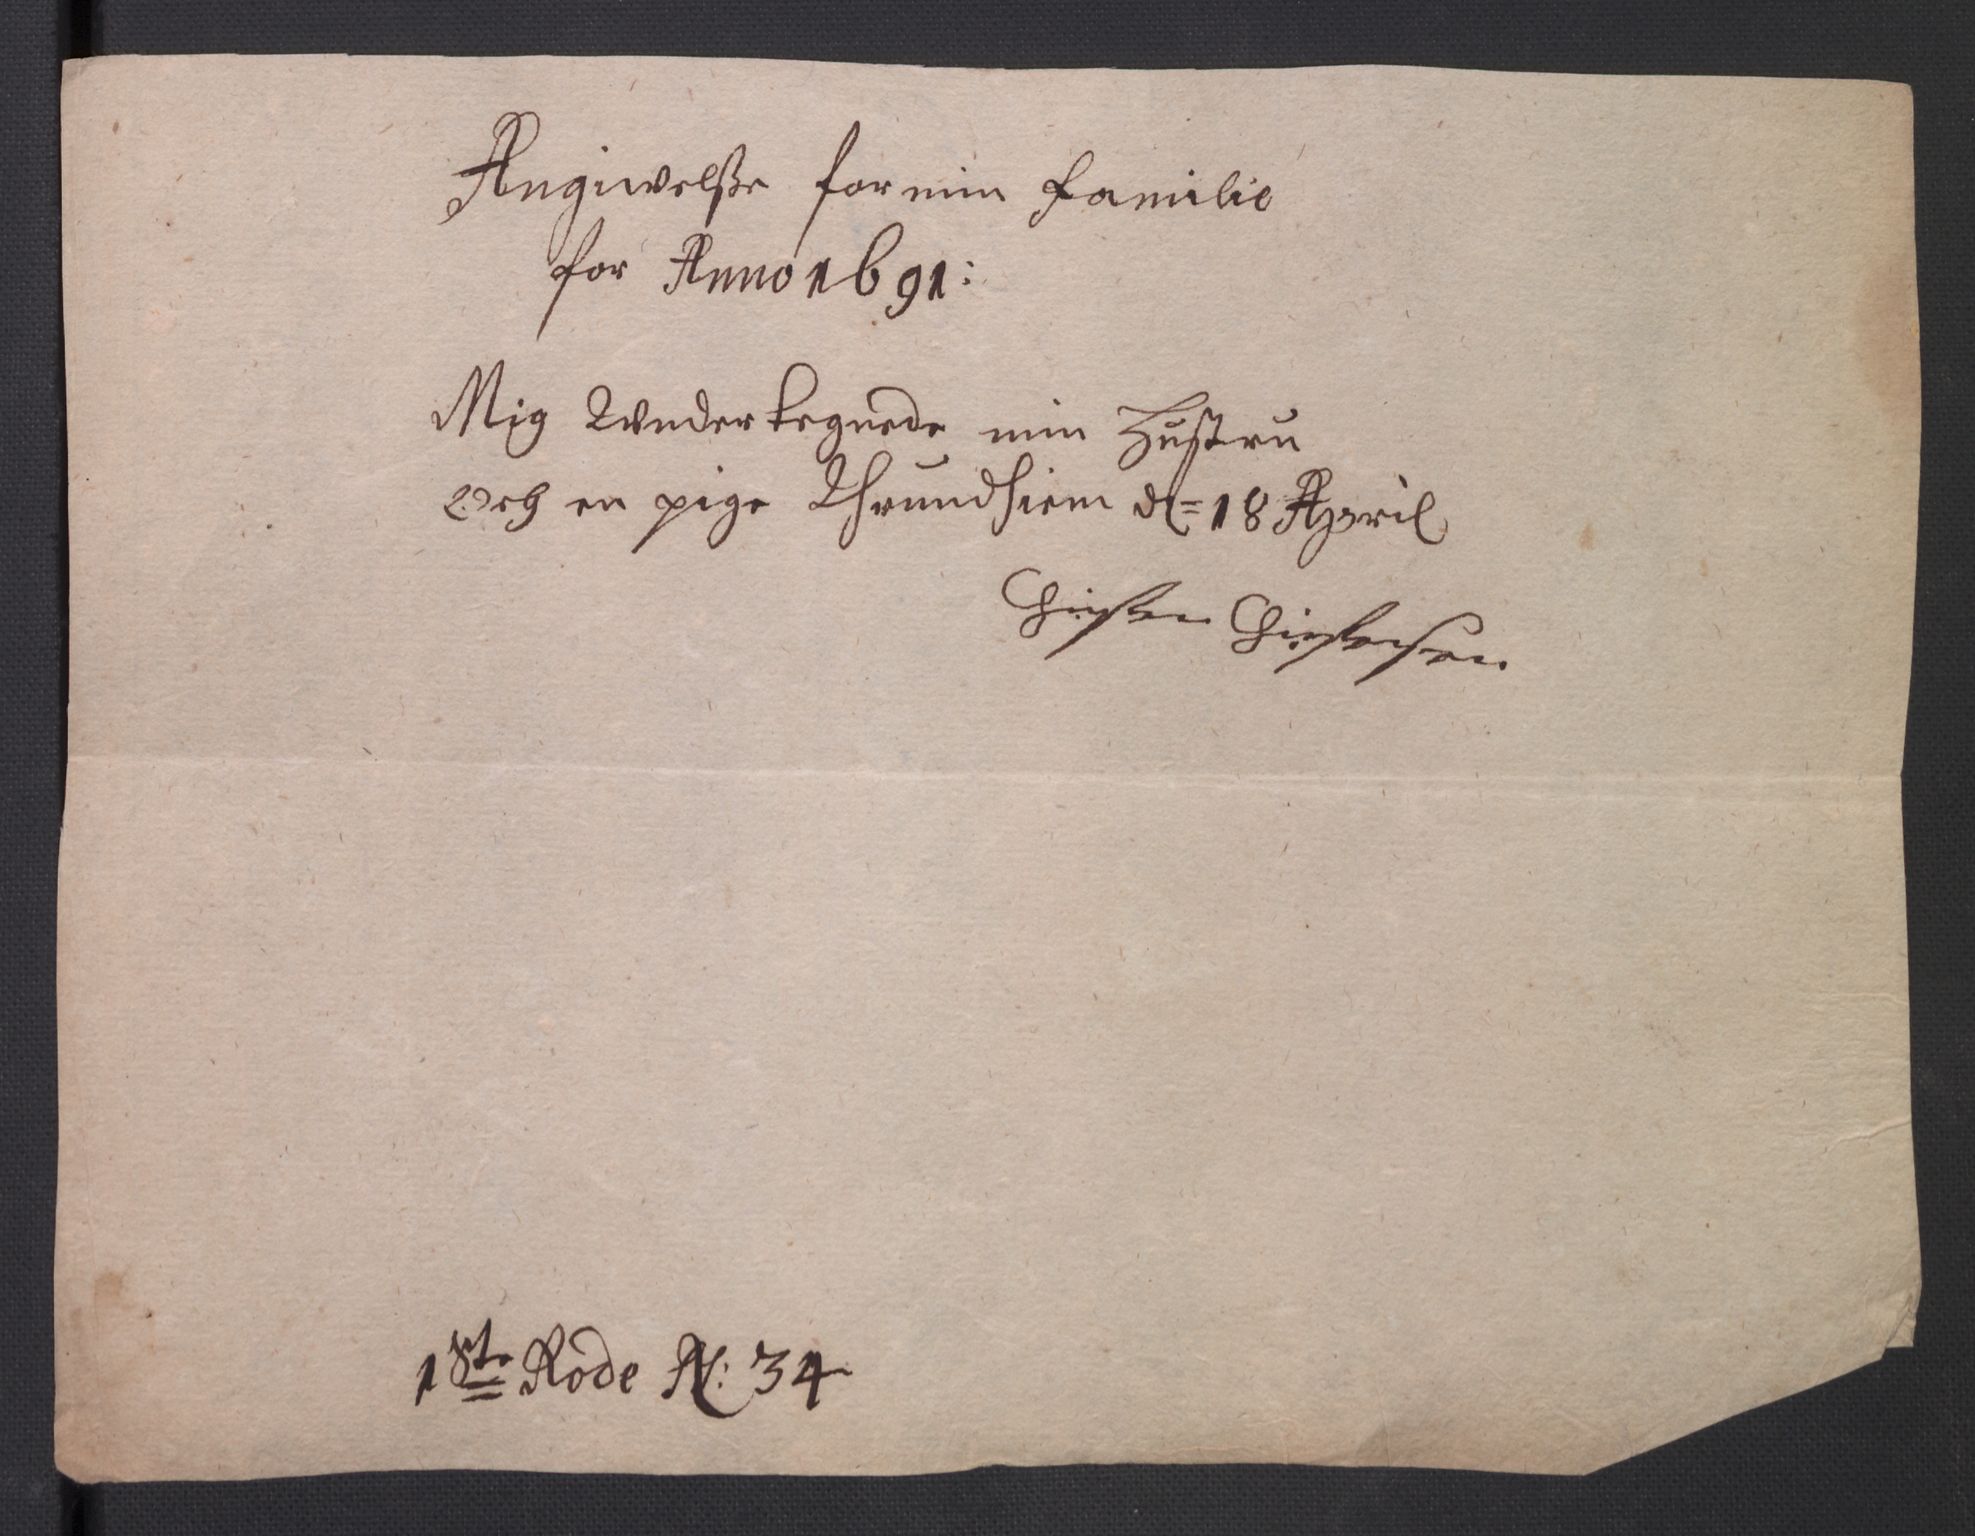 Angiwelsße for min Familie
for Anno 1691:
Mig Wndertegnede min Hustru
Och en pige Thrundhiem dn= 18 April
Christen Christensen
1ste Rode N: 34